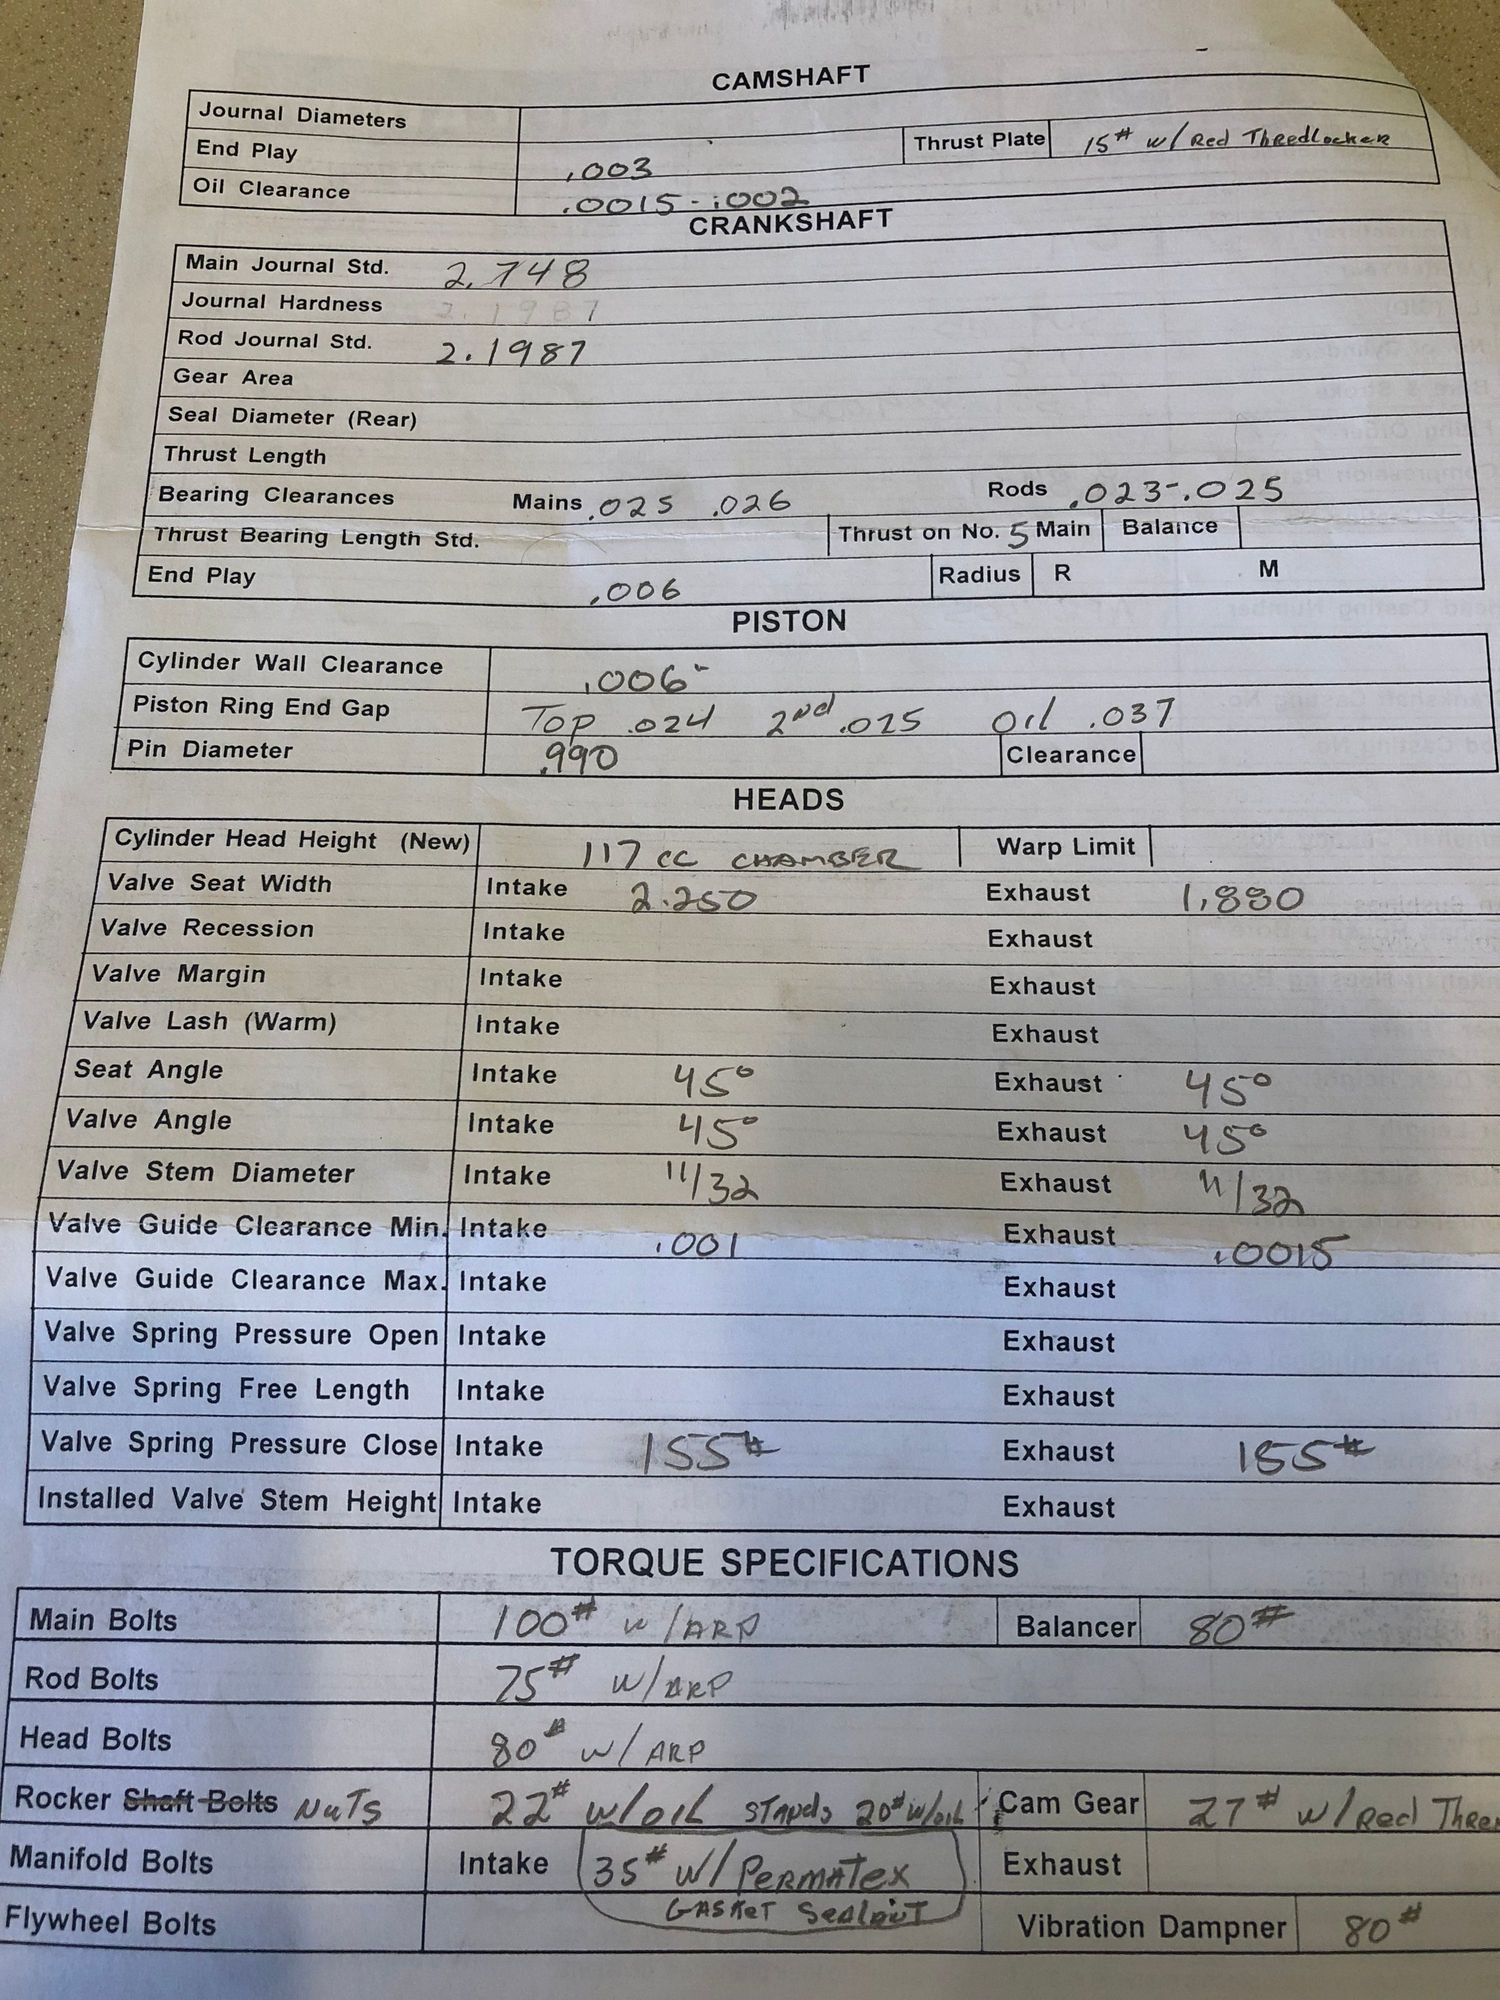 CAMSHAFT
Journal Diameters
End Play .003 Thrust Plate 15# w/ Red Thredlocker
Oil Clearance .0015-.002
CRANKSHAFT
Main Journal Std. 2.748
Journal Hardness 2.1987
Rod Journal Std. 2.1987
Gear Area
Seal Diameter (Rear)
Thrust Length
Bearing Clearances Mains .025 .026 Rods .023-.025
Thrust Bearing Length Std. Thrust on No. 5 Main Balance
End Play .006 Radius R M
PISTON
Cylinder Wall Clearance .006-
Piston Ring End Gap Top .024 2nd .025 Oil .037
Pin Diameter .990 Clearance
HEADS
Cylinder Head Height (New) 117 cc CHAMBER Warp Limit
Valve Seat Width Intake 2.250 Exhaust 1.880
Valve Recession Intake Exhaust
Valve Margin Intake Exhaust
Valve Lash (Warm) Intake Exhaust
Seat Angle Intake 45° Exhaust 45°
Valve Angle Intake 45° Exhaust 45°
Valve Stem Diameter Intake 11/32 Exhaust 11/32
Valve Guide Clearance Min. Intake .001 Exhaust .0015
Valve Guide Clearance Max. Intake Exhaust
Valve Spring Pressure Open Intake Exhaust
Valve Spring Free Length Intake Exhaust
Valve Spring Pressure Close Intake 155# Exhaust 155#
Installed Valve Stem Height Intake Exhaust
TORQUE SPECIFICATIONS
Main Bolts 100# w/ARP Balancer 80#
Rod Bolts 75# w/ARP
Head Bolts 80# w/ARP
Rocker Shaft Bolts NuTS 22# w/oil STANDS 20# w/oil Cam Gear 27# w/Red Thre
Manifold Bolts Intake 35# w/PERMATEX Exhaust
GASKET Sealant
Flywheel Bolts Vibration Dampner 80#